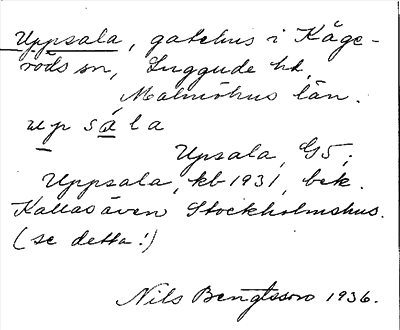 Uppsala, gatehus i Kåge-
röds sn, Luggude hd,
Malmöhus län.
up sála
Upsala, G5;
Uppsala, kb 1931, bek.
Kallas även Stockholmshus.
(se detta!)
Nils Bengtsson 1936.